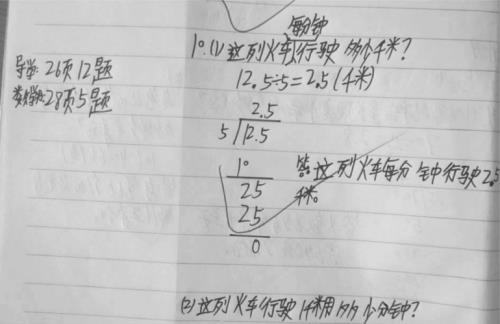 导学: 26页12题
数学书: 28页5题
每分钟
1°.(1)这列火车行驶多少个千米?
12.5÷5=2.5(千米)
2.5
5 12.5
10
25
25
0
答:这列火车每分钟行驶2.5
千米。
(2)这列火车行驶1千米用多少个分钟?